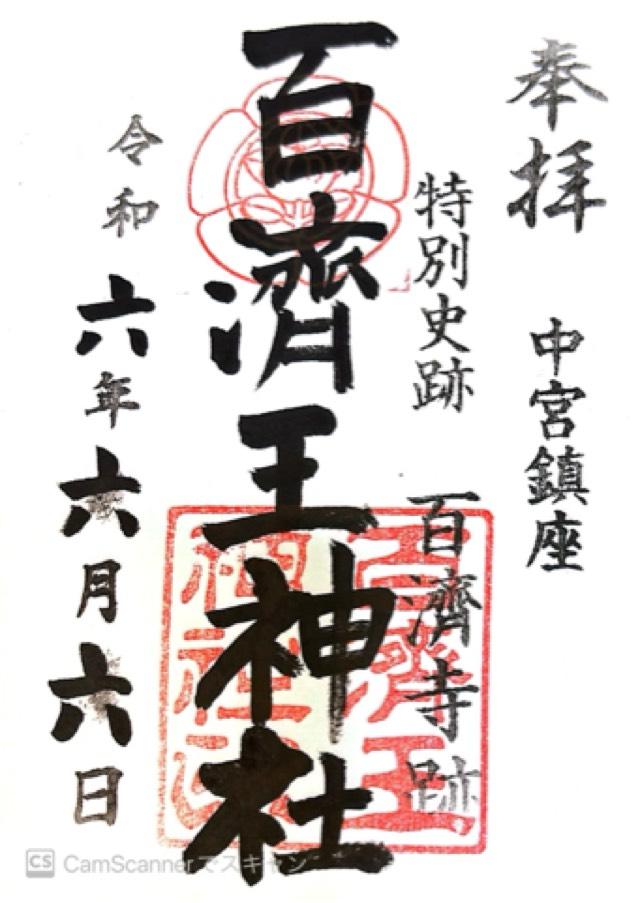 奉拝
中宮鎮座
特別史跡
百濟寺跡
百濟王神社
令和六年六月六日
百濟王
神社
CS CamScannerでスキャン